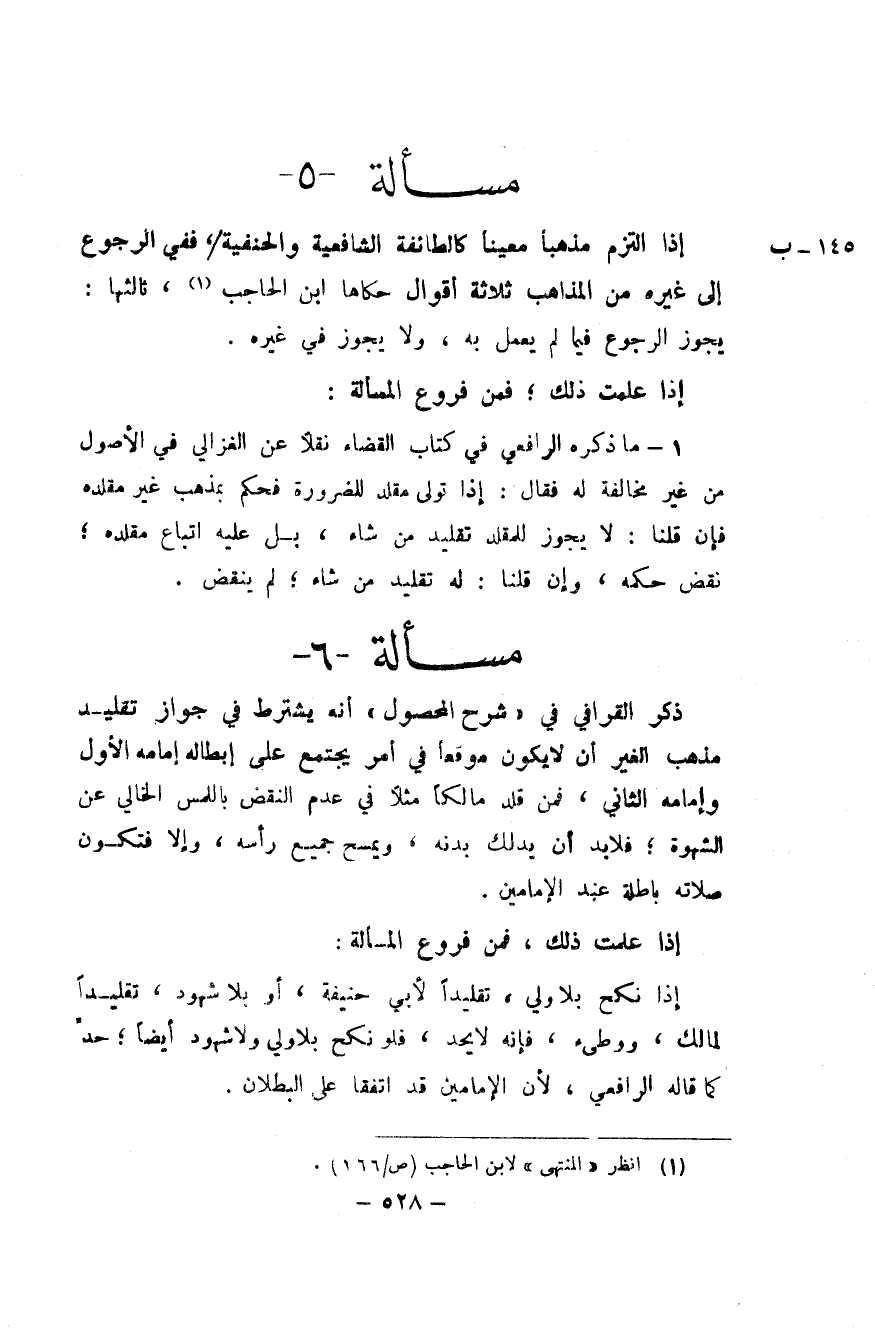 مســـألة -٥-
١٤٥ - ب
إذا التزم مذهباً معيناً كالطائفة الشافعية والحنفية/، ففي الرجوع
إلى غيره من المذاهب ثلاثة أقوال حكاها ابن الحاجب (١) ، ثالثها :
يجوز الرجوع فيما لم يعمل به ، ولا يجوز في غيره .
إذا علمت ذلك ؛ فمن فروع المسألة :
١ - ما ذكره الرافعي في كتاب القضاء نقلاً عن الغزالي في الأصول
من غير مخالفة له فقال : إذا تولى مقلد للضرورة فحكم بمذهب غير مقلده
فإن قلنا : لا يجوز للمقلد تقليد من شاء ، بـل عليه اتباع مقلده ؛
نقض حكمه ، وإن قلنا : له تقليد من شاء ؛ لم ينقض .
مســـألة -٦-
ذكر القرافي في « شرح المحصول » أنه يشترط في جواز تقليـد
مذهب الغير أن لايكون موقعاً في أمر يجتمع على إبطاله إمامه الأول
وإمامه الثاني ، فمن قلد مالكاً مثلاً في عدم النقض باللمس الخالي عن
الشهوة ؛ فلابد أن يدلك بدنه ، ويمسح جميع رأسه ، وإلا فتكـون
صلاته باطلة عند الإمامين .
إذا علمت ذلك ، فمن فروع المسألة :
إذا نكح بلاولي ، تقليداً لأبي حنيفة ، أو بلا شهود ، تقليـداً
لمالك ، ووطىء ، فإنه لايحد ، فلو نكح بلاولي ولاشهود أيضاً ؛ حدّ
كما قاله الرافعي ، لأن الإمامين قد اتفقا على البطلان .
(١) انظر « المنتهى » لابن الحاجب (ص/١٦٦) .
- ٥٢٨ -